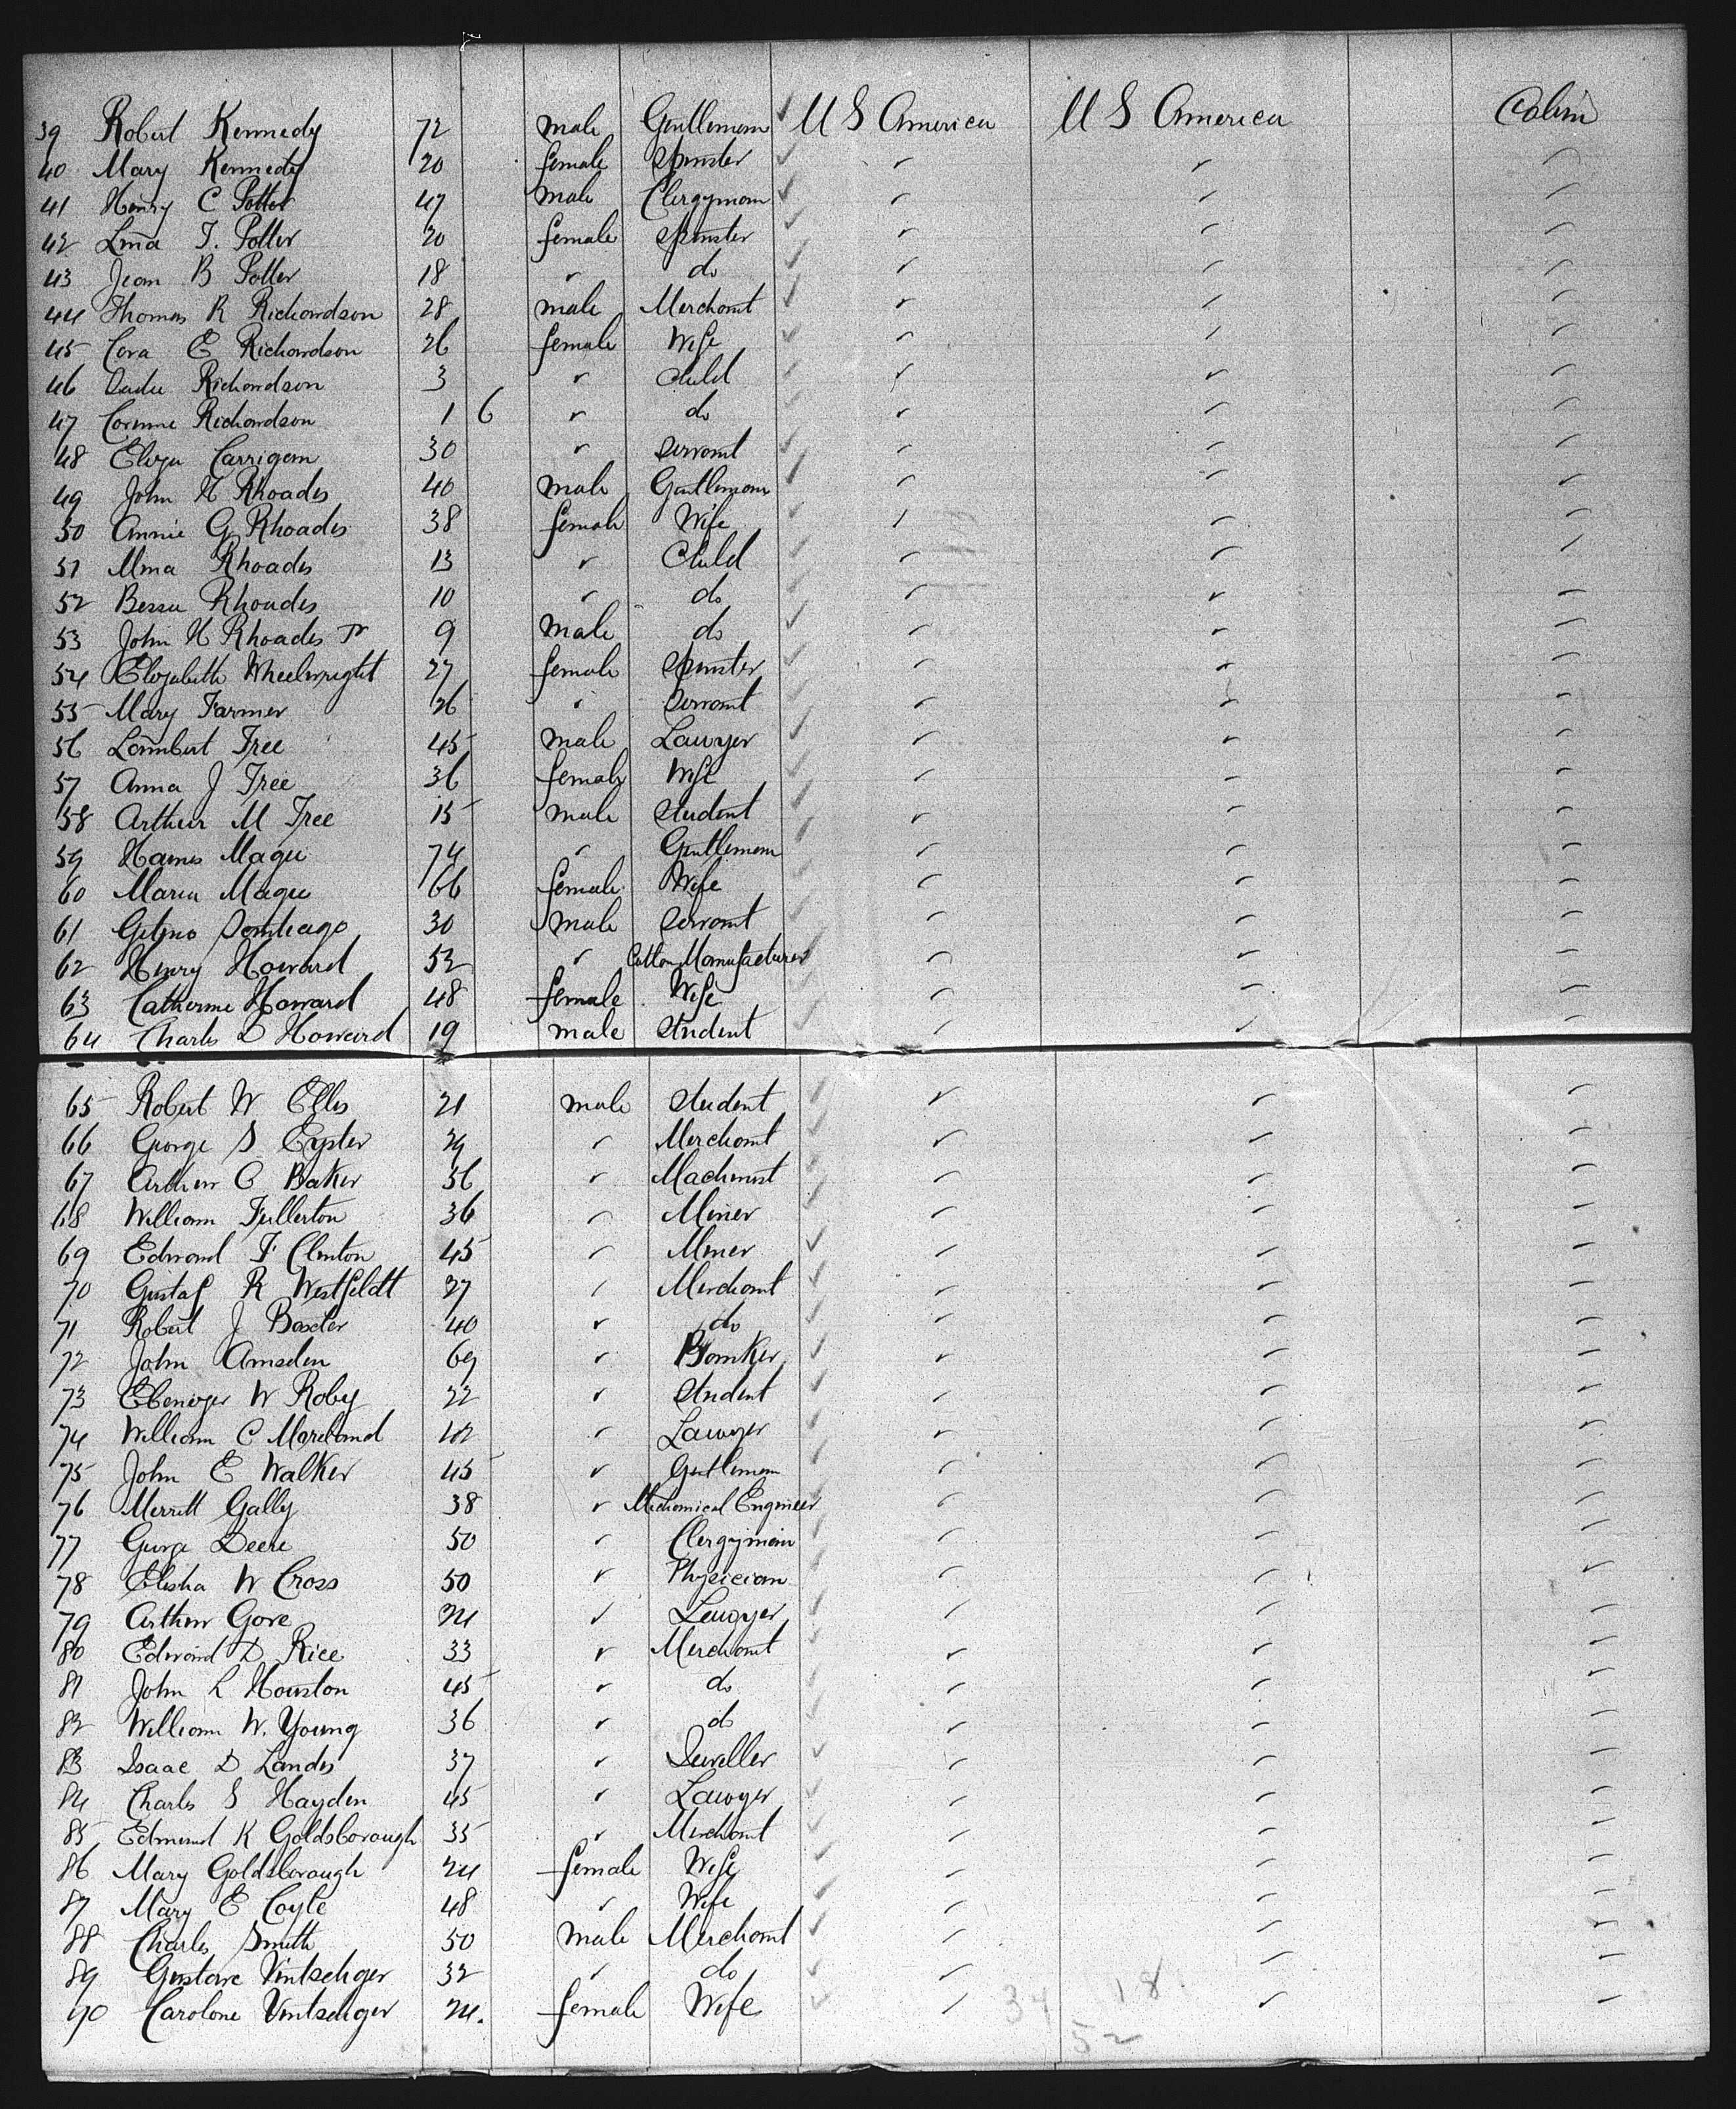 39 Robert Kennedy 72 male Gentleman U S America U S America Cabin
40 Mary Kennedy 20 female Spinster
41 Henry C Potter 47 male Clergyman
42 Lina T. Potter 20 female Spinster
43 Jean B Potter 18 " do
44 Thomas R Richardson 28 male Merchant
45 Cora E Richardson 26 female Wife
46 Sadie Richardson 3 " Child
47 Corinne Richardson 1 6 " do
48 Eliza Carrigan 30 " Servant
49 John H Rhoades 40 male Gentleman
50 Annie G Rhoades 38 female Wife
51 Mina Rhoades 13 " Child
52 Bessie Rhoades 10 " do
53 John H Rhoades Jr 9 male do
54 Elizabeth Wheelwright 27 female Spinster
55 Mary Farmer 26 " Servant
56 Lambert Tree 45 male Lawyer
57 Anna J Tree 36 female Wife
58 Arthur M Tree 15 male Student
59 Haines Magee 74 " Gentleman
60 Maria Magee 66 female Wife
61 Santiago 30 male Servant
62 Henry Howard 52 " Cotton Manufacturer
63 Catherine Howard 48 female Wife
64 Charles D Howard 19 male Student
65 Robert W Ellis 21 male Student
66 George S Eyster 29 " Merchant
67 Arthur C Baker 36 " Machinist
68 William Fullerton 36 " Miner
69 Edward F Clinton 45 " Miner
70 Gustaf R Westfeldt 27 " Merchant
71 Robert J Baxter 40 " do
72 John Amsden 69 " Banker
73 Ebenezer W Roby 22 " Student
74 William C Marchand 42 " Lawyer
75 John E Walker 45 " Gentleman
76 Merritt Gally 38 " Mechanical Engineer
77 George Deere 50 " Clergyman
78 Elisha W Cross 50 " Physician
79 Arthur Gore 24 " Lawyer
80 Edward D Rice 33 " Merchant
81 John L Houston 45 " do
82 William W. Young 36 " do
83 Isaac D Landis 37 " Jeweller
84 Charles S Hayden 45 " Lawyer
85 Edmund K Goldsborough 35 " Merchant
86 Mary Goldsborough 24 female Wife
87 Mary E Coyle 48 " Wife
88 Charles Smith 50 male Merchant
89 Gustave Vintschger 32 " do
90 Carolone Vintschger 24. female Wife
34 18
52